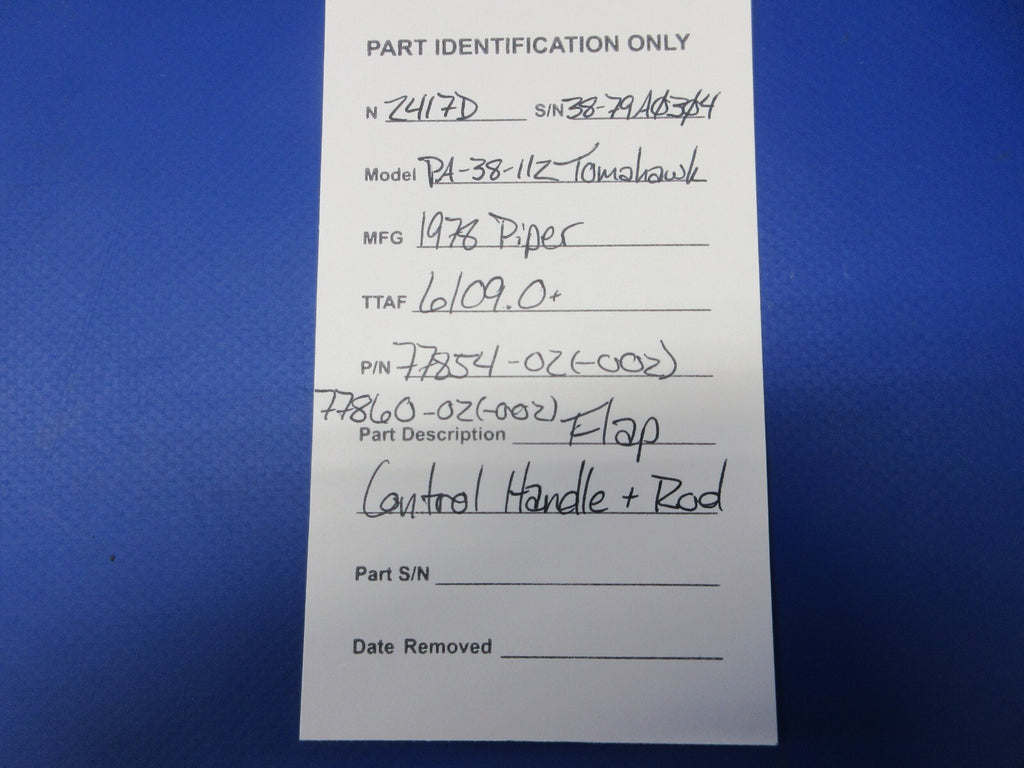 PART IDENTIFICATION ONLY
N 2417D S/N 38-79A0304
Model PA-38-112 Tomahawk
MFG 1978 Piper
TTAF 6109.0+
P/N 77854-02(-002)
77860-02(-002)
Part Description Flap
Control Handle + Rod
Part S/N
Date Removed